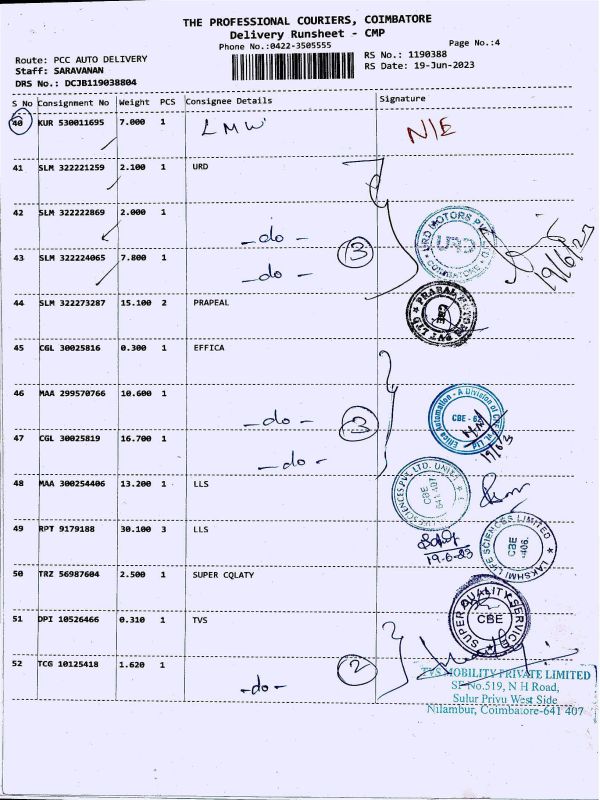 THE PROFESSIONAL COURIERS, COIMBATORE
Delivery Runsheet - CMP
Phone No.:0422-3505555
Page No.:4
Route: PCC AUTO DELIVERY
RS No.: 1190388
Staff: SARAVANAN
RS Date: 19-Jun-2023
DRS No.: DCJB119038804
S No Consignment No Weight PCS Consignee Details Signature
40 KUR 530011695 7.000 1 LMW N/E
41 SLM 322221259 2.100 1 URD
42 SLM 322222869 2.000 1
-do- 3
URD MOTORS
URD
COIMBATORE
19/6/23
43 SLM 322224065 7.800 1
-do-
44 SLM 322273287 15.100 2 PRAPEAL
PRABAL MOTORS PVT LTD
CBE
45 CGL 30025816 0.300 1 EFFICA
46 MAA 299570766 10.600 1
-do- 3
Effica Automation - A Division of
CBE - 62
19/6/23
47 CGL 30025819 16.700 1
-do-
48 MAA 300254406 13.200 1 LLS
LIFE SCIENCES PVT. LTD. UNIT
CBE
641 407
49 RPT 9179188 30.100 3 LLS
19-6-23
LAKSHMI LIFE SCIENCES LIMITED
CBE
-406.
50 TRZ 56987604 2.500 1 SUPER CQLATY
SUPER QUALITY SERVICE
CBE
51 DPI 10526466 0.310 1 TVS
52 TCG 10125418 1.620 1
-do- 2
TVS MOBILITY PRIVATE LIMITED
SF No.519, N H Road,
Sulur Privu West Side
Nilambur, Coimbatore-641 407